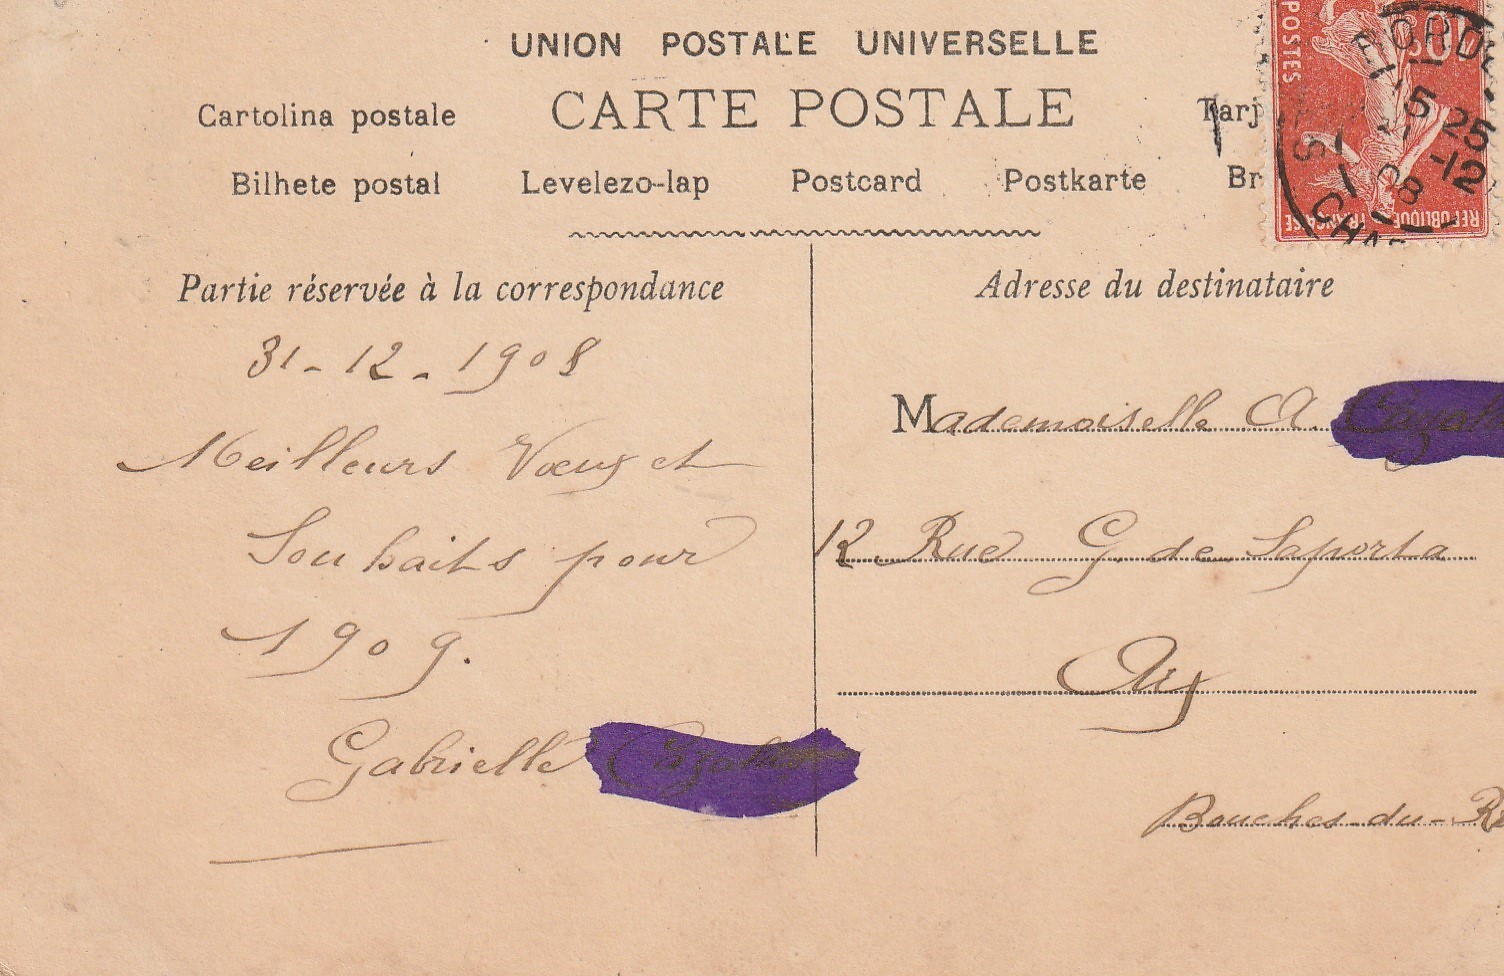 UNION POSTALE UNIVERSELLE
Cartolina postale CARTE POSTALE Tarj
Bilhete postal Levelezo-lap Postcard Postkarte Br
POSTES
10
REPUBLIQUE FRANÇAISE
BORDE
15 25
31 -12
08
CHA
Partie réservée à la correspondance
31-12-1908
Meilleurs Vœux et
Souhaits pour
1909.
Gabrielle
Adresse du destinataire
Mademoiselle A.
12 Rue G. de Saporta
Aix
Bouches-du-R